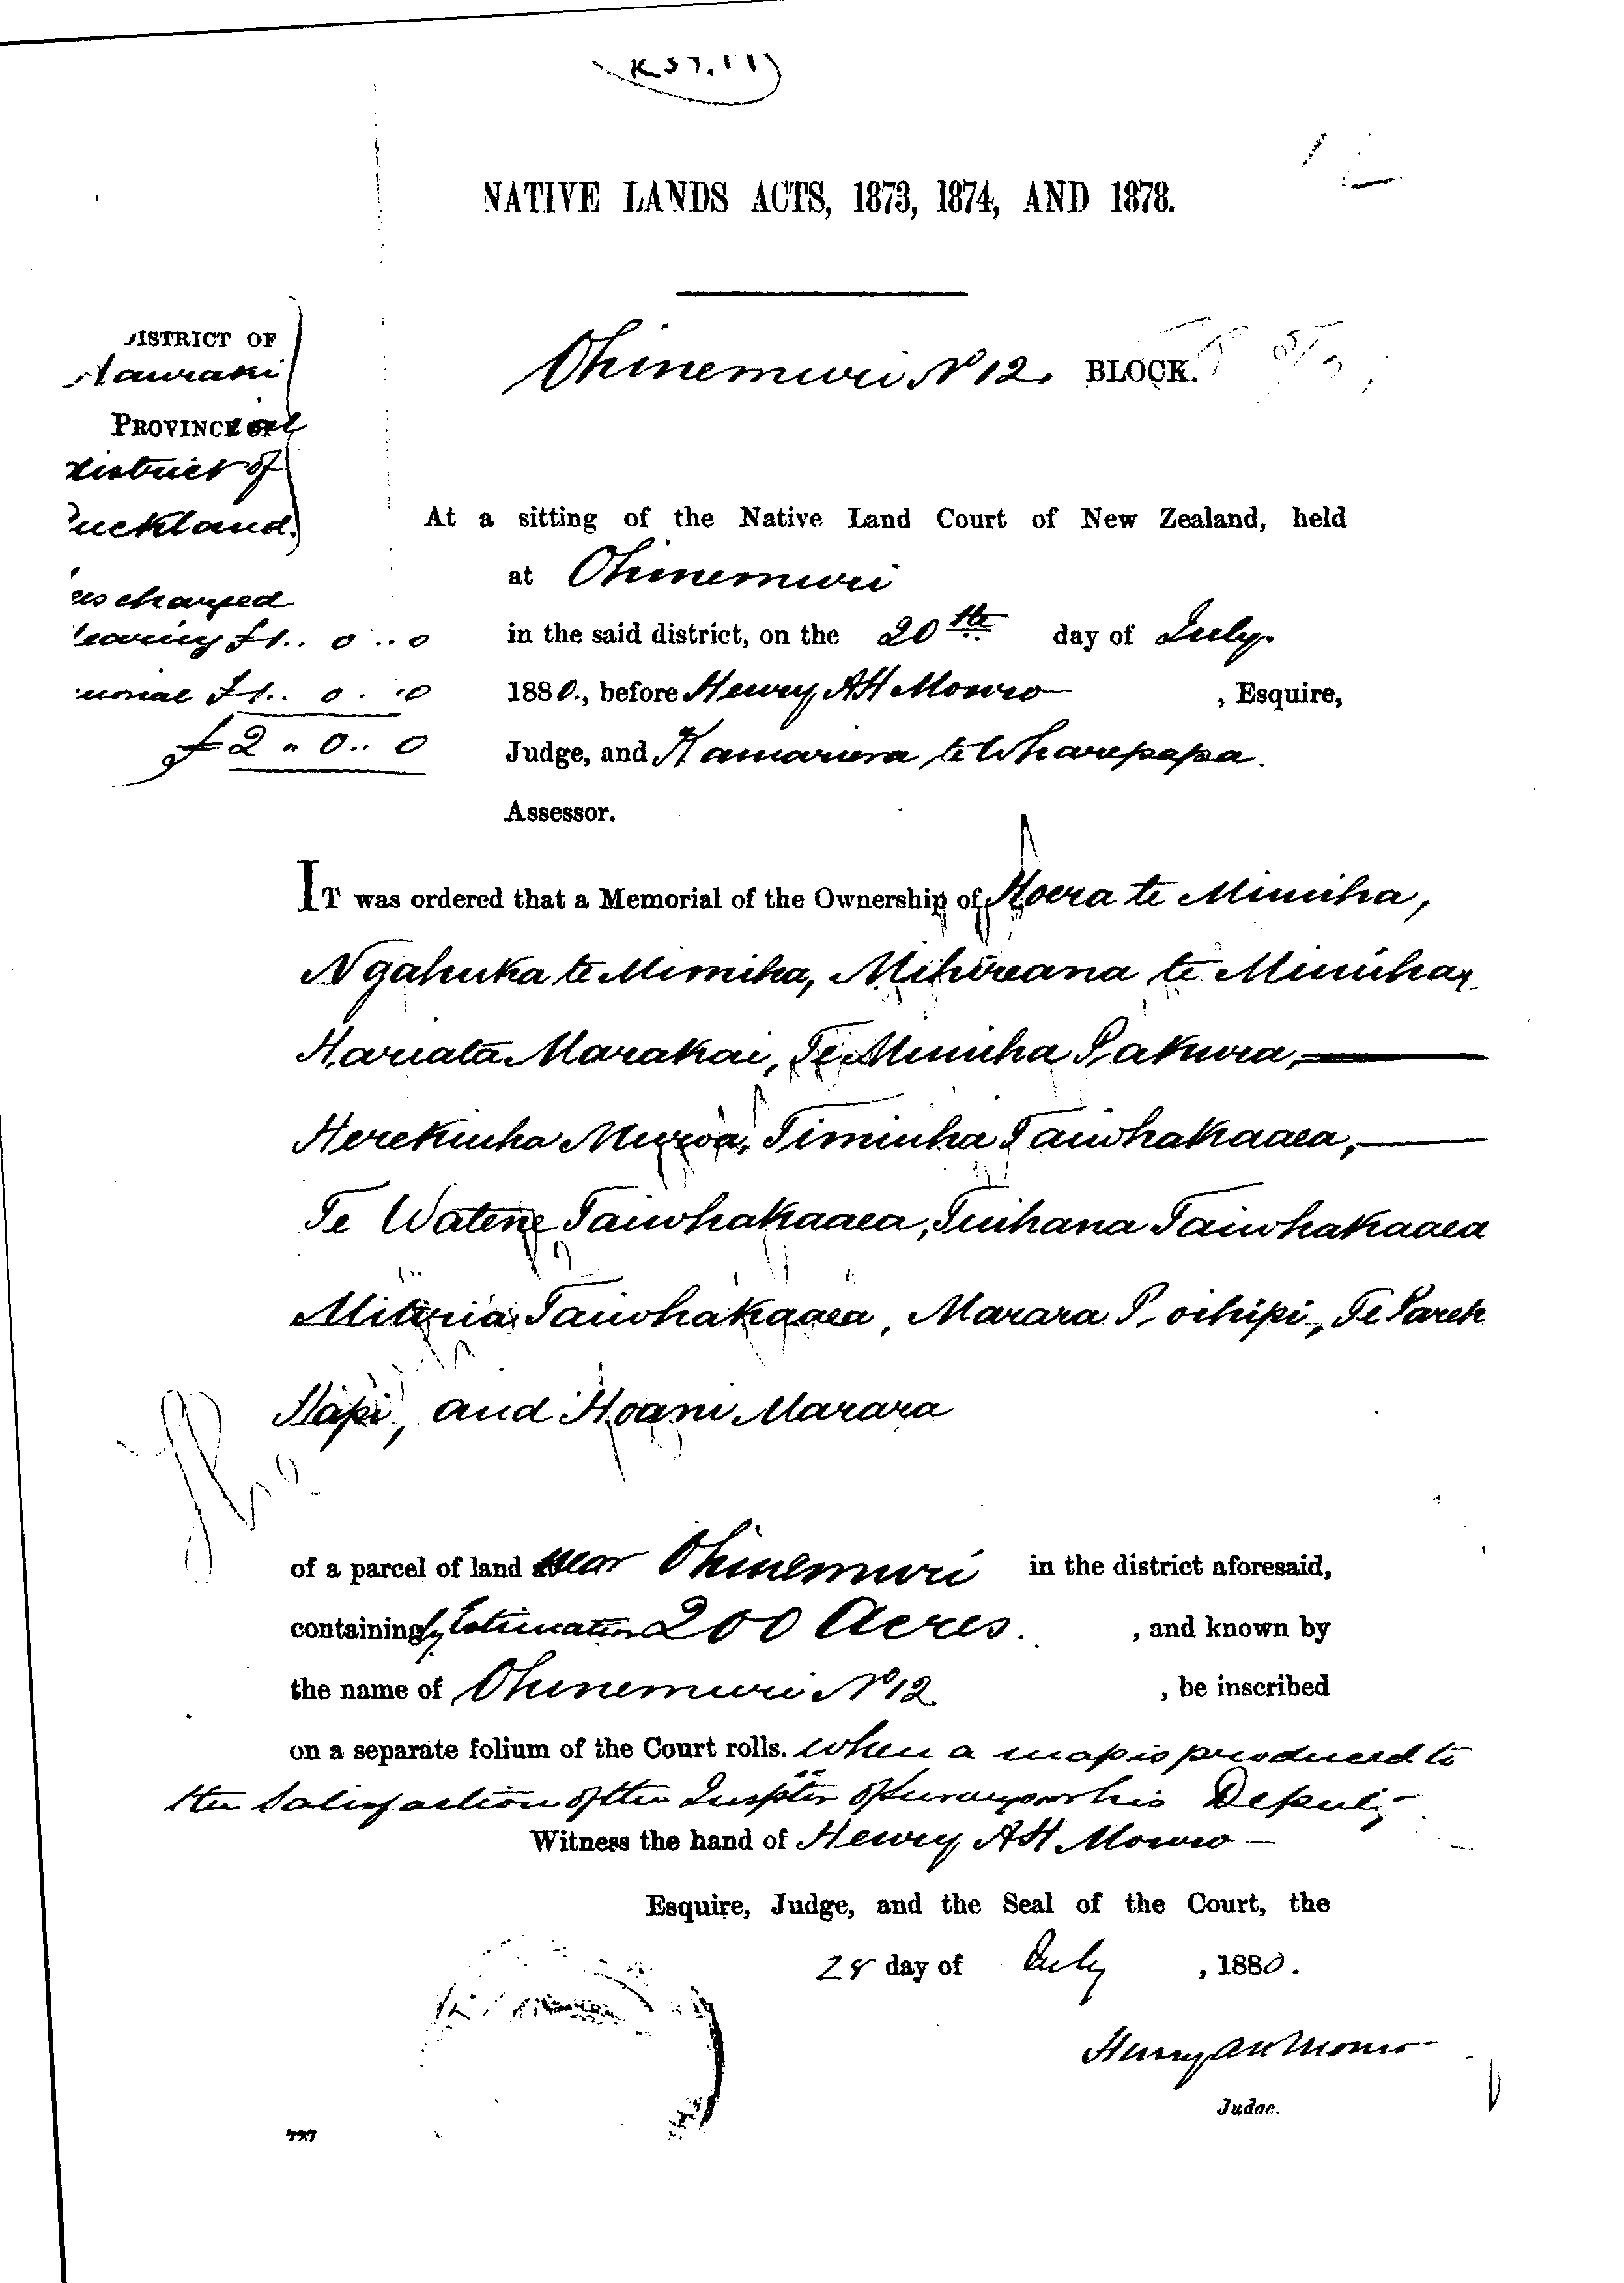 NATIVE LANDS ACTS, 1873, 1874, AND 1878.
ISTRICT OF
Hauraki
PROVINCIAL
district of
uckland.
Ohinemuri No 12. BLOCK.
es charged
earing £1 .. 0 .. 0
morial £1 .. 0 .. 0
£2 " 0 .. 0
At a sitting of the Native Land Court of New Zealand, held
at Ohinemuri
in the said district, on the 20th day of July
1880., before Henry AH Monro, Esquire,
Judge, and Kamariera te Wharepapa.
Assessor.
IT was ordered that a Memorial of the Ownership of Hoera te Mimiha,
Ngahuka te Mimiha, Mihireana te Mimiha,
Hariata Marakai, Te Mimiha Pakura,
Herekiuha Murwa, Timiuha Taiwhakaaea,
Te Watene Taiwhakaaea, Tuihana Taiwhakaaea
Miteria Taiwhakaaea, Marara Poihipi, Te Pareti
Hapi, and Hoani Marara
of a parcel of land near Ohinemuri in the district aforesaid,
containing by Estimation 200 Acres., and known by
the name of Ohinemuri No 12, be inscribed
on a separate folium of the Court rolls. when a map is produced to
the satisfaction of the Insptr of Surveys or his Deputy
Witness the hand of Henry AH Monro
Esquire, Judge, and the Seal of the Court, the
28 day of July, 1880.
Henry AH Monro
Judge.
727